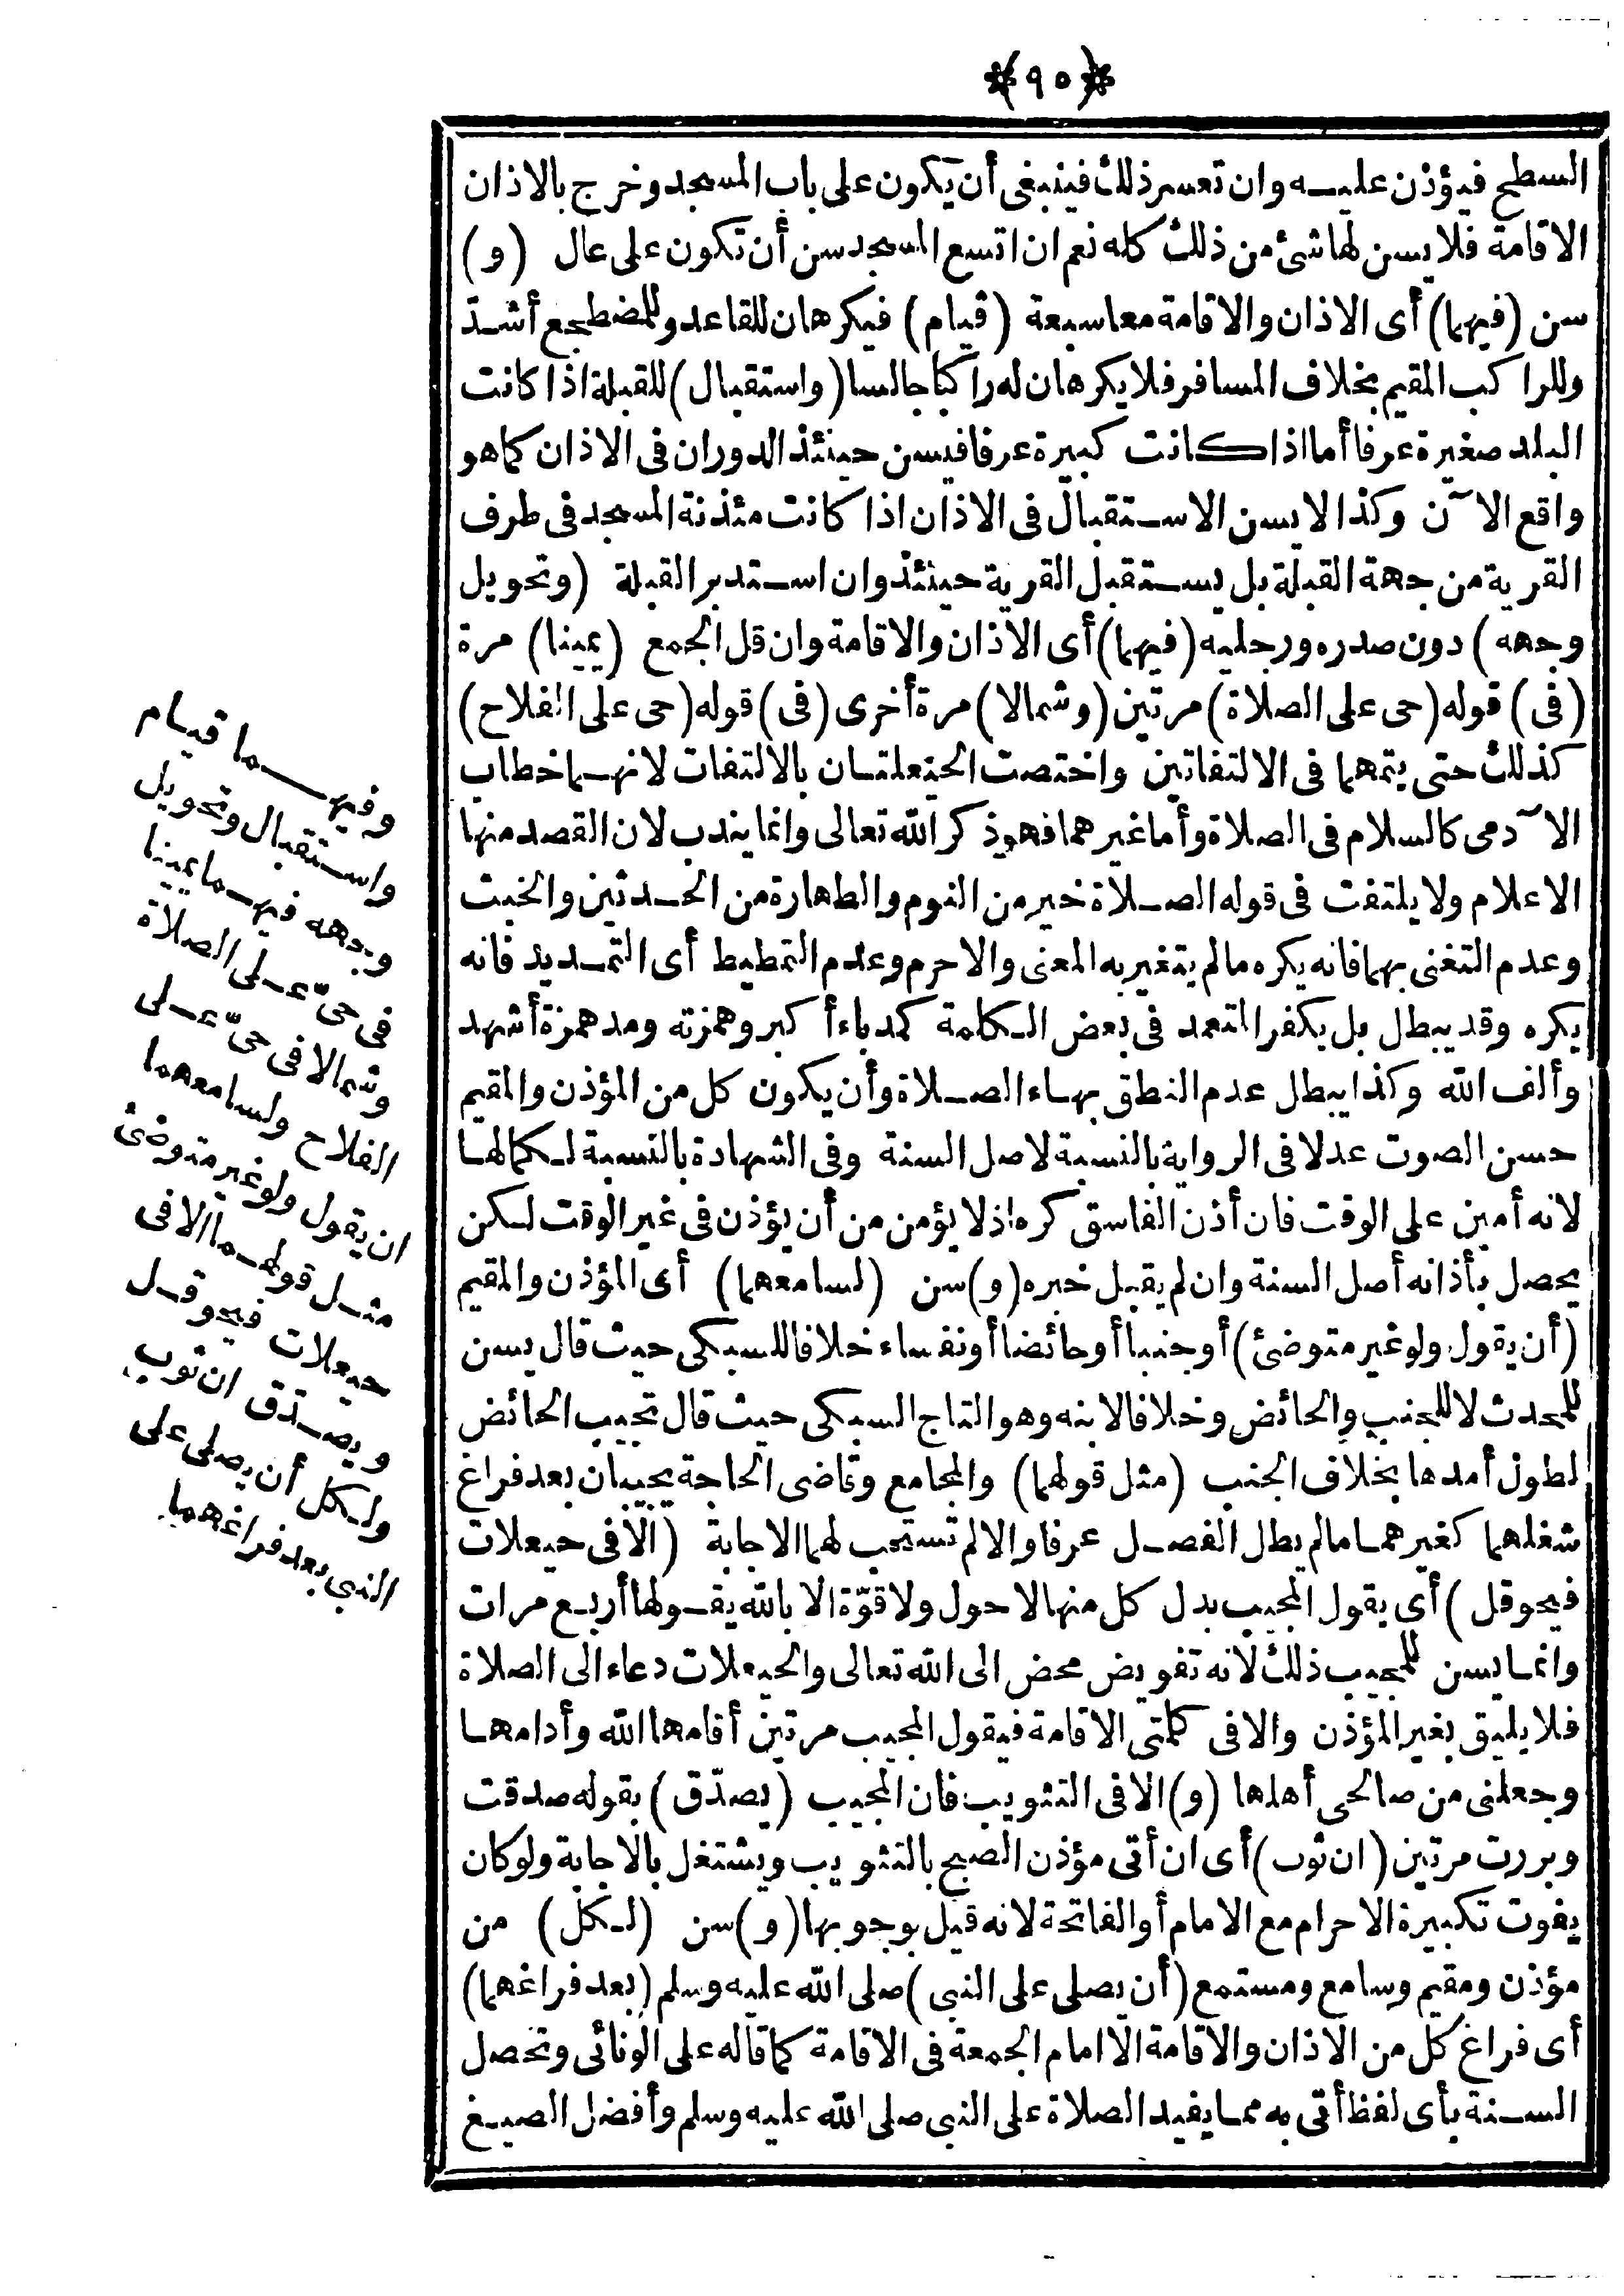 ﴿٩٥﴾
السطح فيؤذن عليه وان تعسر ذلك فينبغى أن يكون على باب المسجد وخرج بالاذان
الاقامة فلا يسن لها شئ من ذلك كله نعم ان اتسع المسجد سن أن تكون على عال (و)
سن (فيهما) أى الاذان والاقامة معا سبعة (قيام) فيكرهان للقاعد وللمضطجع أشدّ
وللراكب المقيم بخلاف المسافر فلا يكرهان له راكبا جالسا (واستقبال) للقبلة اذا كانت
البلد صغيرة عرفا أما اذا كانت كبيرة عرفا فيسن حينئذ الدوران فى الاذان كما هو
واقع الآن وكذا لا يسن الاستقبال فى الاذان اذا كانت مئذنة المسجد فى طرف
القرية من جهة القبلة بل يستقبل القرية حينئذ وان استدبر القبلة (وتحويل
وجهه) دون صدره ورجليه (فيهما) أى الاذان والاقامة وان قل الجمع (يمينا) مرة
(فى) قوله (حى على الصلاة) مرتين (وشمالا) مرة أخرى (فى) قوله (حى على الفلاح)
كذلك حتى يتمهما فى الالتفاتين واختصت الحيعلتان بالالتفات لانهما خطاب
الآدمى كالسلام فى الصلاة وأما غيرهما فهو ذكر الله تعالى وانما يندب لان القصد منها
الاعلام ولا يلتفت فى قوله الصلاة خير من النوم والطهارة من الحدثين والخبث
وعدم التغنى بهما فانه يكره ما لم يتغير به المعنى والا حرم وعدم التمطيط أى التمديد فانه
يكره وقد يبطل بل يكفر المتعمد فى بعض الكلمة كمد باء أكبر وهمزته ومد همزة أشهد
وألف الله وكذا يبطل عدم النطق بهاء الصلاة وأن يكون كل من المؤذن والمقيم
حسن الصوت عدلا فى الرواية بالنسبة لاصل السنة وفى الشهادة بالنسبة لكمالها
لانه أمين على الوقت فان أذن الفاسق كره اذ لا يؤمن من أن يؤذن فى غير الوقت لكن
يحصل بأذانه أصل السنة وان لم يقبل خبره (و) سن (لسامعهما) أى المؤذن والمقيم
(أن يقول ولو غير متوضئ) أو جنبا أو حائضا أو نفساء خلافا للسبكى حيث قال يسن
للمحدث لا للجنب والحائض وخلافا لابنه وهو التاج السبكى حيث قال تجيب الحائض
لطول أمدها بخلاف الجنب (مثل قولهما) والمجامع وقاضى الحاجة يجيبان بعد فراغ
شغلهما كغيرهما ما لم يطل الفصل عرفا والا لم تستحب لهما الاجابة (الا فى حيعلات
فيحوقل) أى يقول المجيب بدل كل منها لا حول ولا قوّة الا بالله يقولها أربع مرات
وانما يسن للمجيب ذلك لانه تفويض محض الى الله تعالى والحيعلات دعاء الى الصلاة
فلا يليق بغير المؤذن والا فى كلمتى الاقامة فيقول المجيب مرتين أقامها الله وأدامها
وجعلنى من صالحى أهلها (و) الا فى التثويب فان المجيب (يصدّق) بقوله صدقت
وبررت مرتين (ان ثوب) أى ان أتى مؤذن الصبح بالتثويب ويشتغل بالاجابة ولو كان
يفوت تكبيرة الاحرام مع الامام أو الفاتحة لانه قيل بوجوبها (و) سن (لكل) من
مؤذن ومقيم وسامع ومستمع (أن يصلى على النبى) صلى الله عليه وسلم (بعد فراغهما)
أى فراغ كل من الاذان والاقامة الا امام الجمعة فى الاقامة كما قاله على الونائى وتحصل
السنة بأى لفظ أتى به مما يفيد الصلاة على النبى صلى الله عليه وسلم وأفضل الصيغ
وفيهما قيام
واستقبال وتحويل
وجهه فيهما يمينا
فى حىّ على الصلاة
وشمالا فى حىّ على
الفلاح ولسامعهما
ان يقول ولو غير متوضئ
مثل قولهما الا فى
حيعلات فيحوقل
ويصدّق ان ثوب
ولكل أن يصلى على
النبى بعد فراغهما